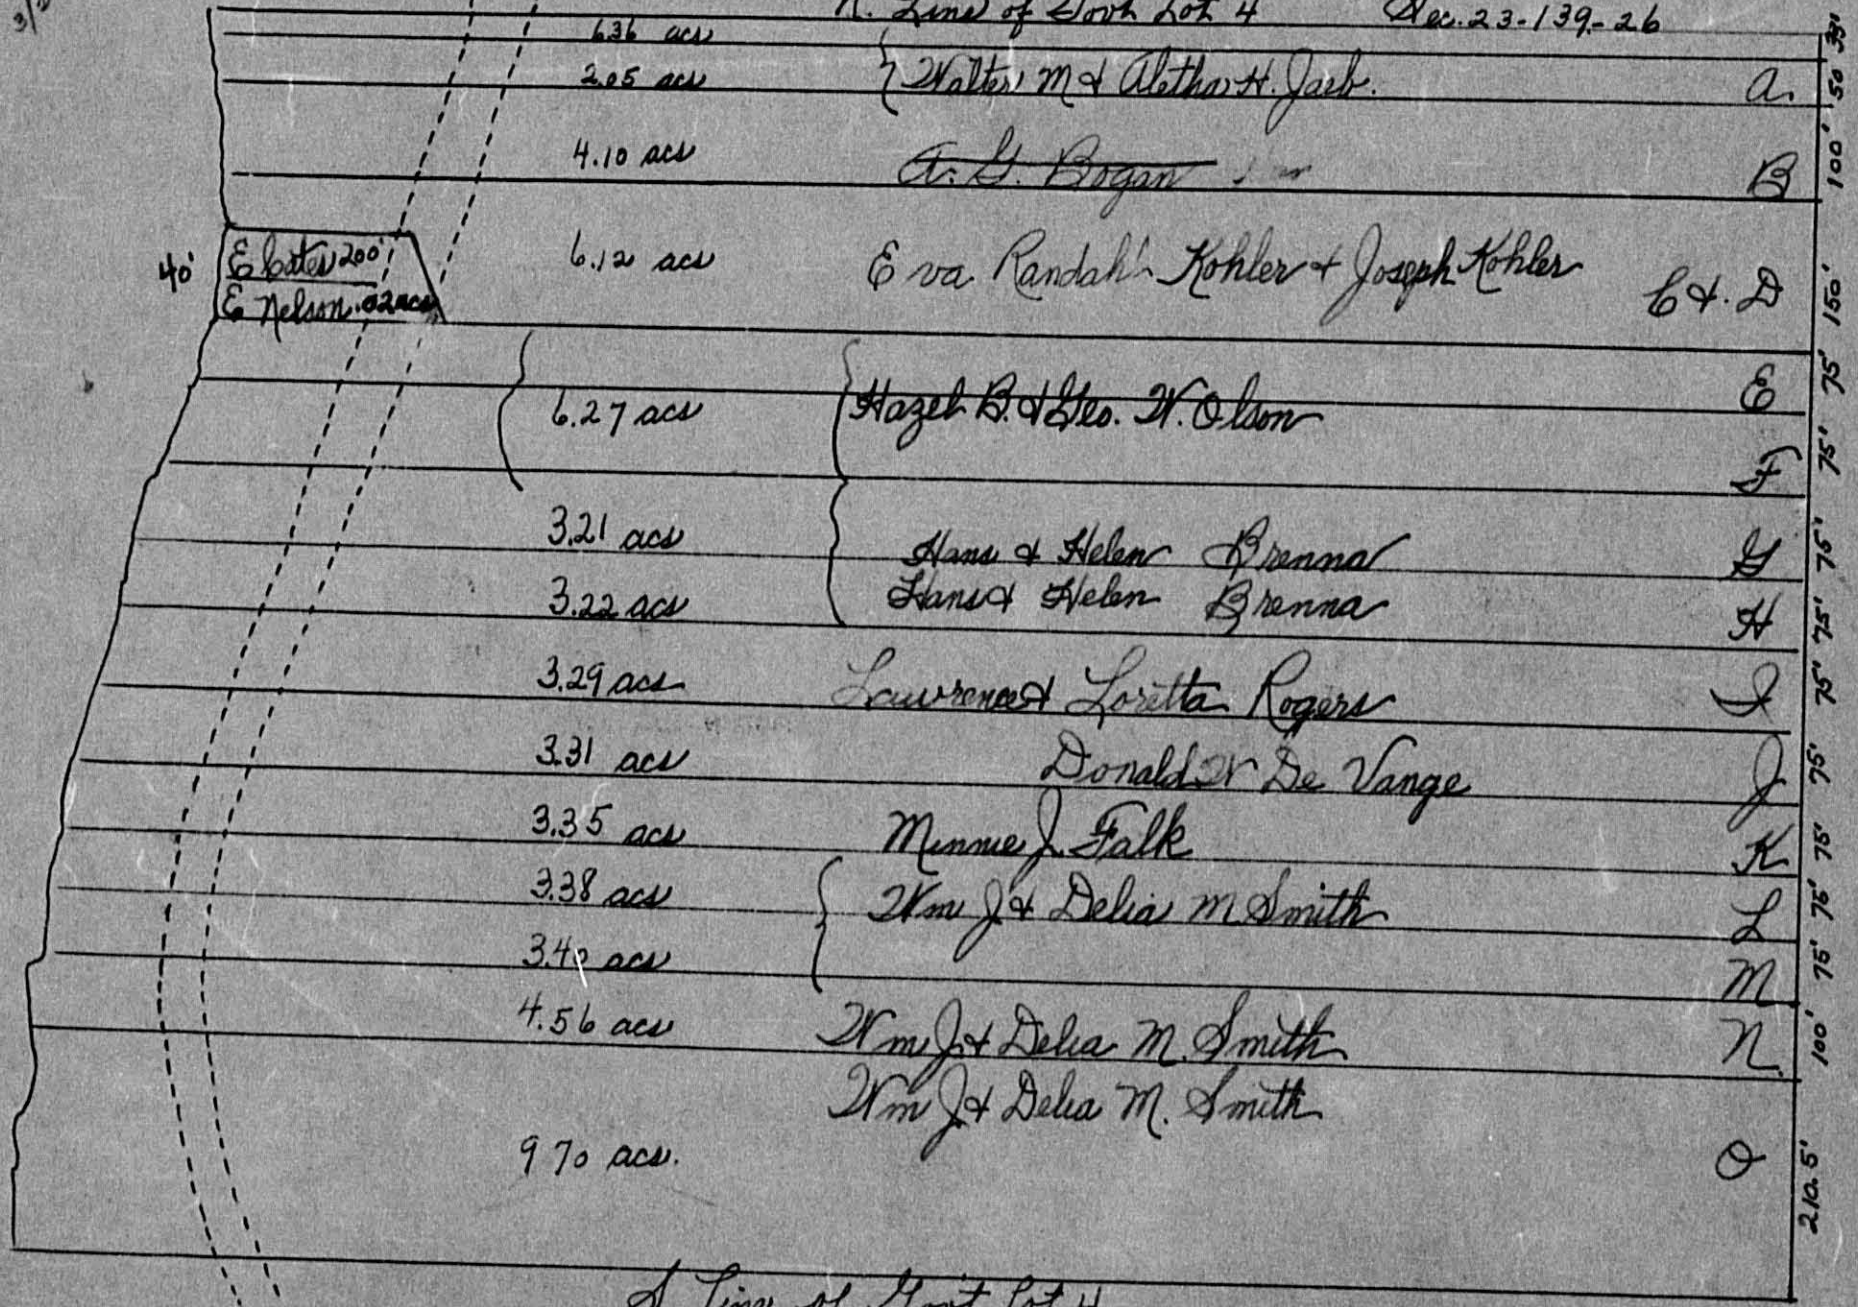 N. Line of Govt Lot 4 Sec. 23-139-26
1.36 acs 33'
2.05 acs Walter M & Aletha H. Jaeb. A. 50'
4.10 acs A. G. Bogan B 100'
40' E Cates 200' 6.12 acs Eva Randahl Kohler & Joseph Kohler C & D 150'
E Nelson .02 acs
E 75'
6.27 acs Hazel B. & Geo. W. Olson
F 75'
3.21 acs Hans & Helen Brenna G 75'
3.22 acs Hans & Helen Brenna H 75'
3.29 acs Lawrence & Loretta Rogers I 75'
3.31 acs Donald W De Vange J 75'
3.35 acs Minnie J. Falk K 75'
3.38 acs Wm J & Delia M Smith L 75'
3.40 acs M 75'
4.56 acs Wm J. & Delia M. Smith N 100'
Wm J & Delia M. Smith
9 70 acs. O 210.5'
S Line of Gov't Lot 4